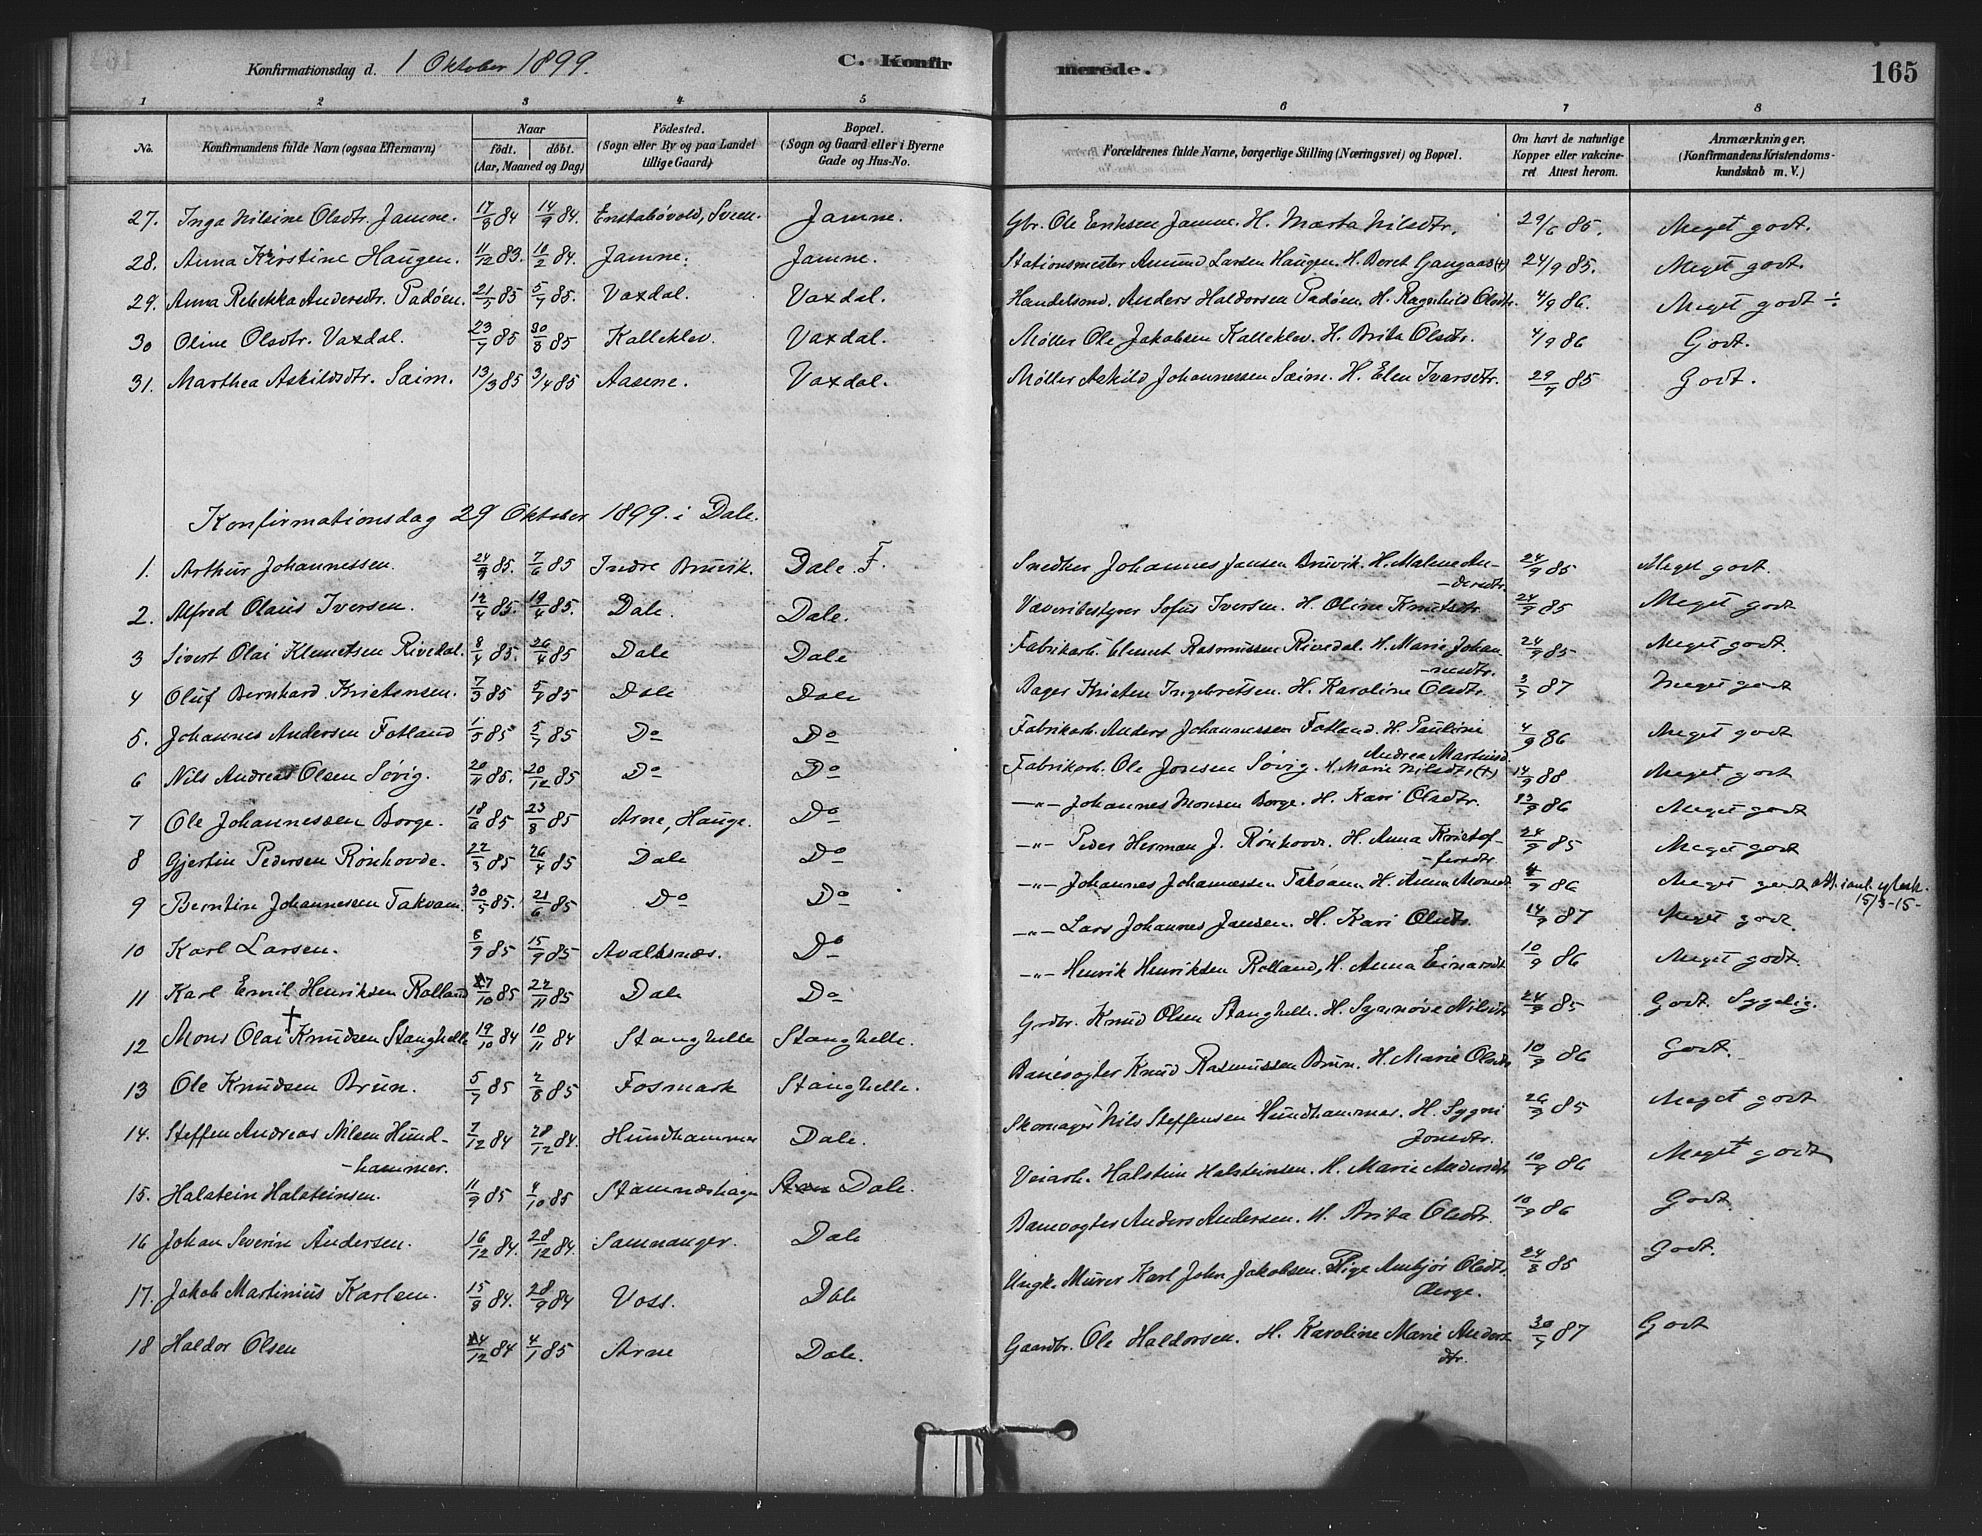 Konfirmationsdag d. 1 Oktober 1899. C. Konfirmerede. 165
1 2 3 4 5 6 7 8
No. Konfirmandens fulde Navn (ogsaa Efternavn) Naar født. døbt. (Aar, Maaned og Dag) Födested. (Sogn eller By og paa Landet tillige Gaard) Bopæl. (Sogn og Gaard eller i Byerne Gade og Hus-No. Forældrenes fulde Navne, borgerlige Stilling (Næringsvei) og Bopæl. Om havt de naturlige Kopper eller vakcineret Attest herom. Anmærkninger. (Konfirmandens Kristendomskundskab m. V.)
27. Inga Nilsine Olsdtr. Jamne. 17/8 84 14/9 84. Jamne. Gbr. Ole Eriksen Jamne. H. Marta Nilsdtr. 29/6 85. Meget godt.
28. Anna Kirstine Haugen. 11/12 83. 10/2 84. Jamne. Jamne. Stationsmester Amund Larsen Haugen. H. Beret Gangaas (+) 24/9 85. Meget godt.
29. Anna Rebekka Andersdtr. Padøen. 21/5 85 5/7 85. Vaxdal. Vaxdal. Handelsmd. Anders Haldorsen Padøen. H. Ragnhild Olsdtr. 4/9 86. Meget godt ÷
30 Oline Olsdtr. Vaxdal. 23/7 85 30/8 85 Kalleklev. Vaxdal. Møller Ole Jakobsen Kalleklev. H. Brita Olsdtr. 4/9 86 Godt.
31. Marthea Askildsdtr. Saim. 13/3 85 3/4 85 Aasene. Vaxdal. Møller Askild Johannessen Saim. H. Elen Ivarsdtr. 29/7 85 Godt.
Konfirmationsdag 29 Oktober 1899. i Dale.
1. Arthur Johannessen. 85. 7/6 85 Indre Bruvik. Dale. F. Snedker Johannes Jansen Bruvik. H. Malene An-
-dersdtr. 24/9 85 Meget godt.
2. Alfred Olaus Iversen. 12/4 85. 19/4 85. Dale. Dale. Væveribestyrer Sofus Iversen. H. Oline Knutsdtr. 24/9 85 Meget godt
3 Sivert Olai Klemetsen Rivedal. 8/4 85. 26/4 85 Dale Dale Fabrikarb. Clemet Rasmussen Rivedal. H. Marie Johan-
-nesdtr. 24/9 85 Meget godt.
4 Oluf Bernhard Kristensen. 7/3 85 5/7 85 Dale Dale Bager Kristen Ingebretsen. H. Karoline Olsdtr. 3/7 87 Meget godt
5. Johannes Andersen Fotland 1/5 85 5/7 85 Do Do Fabrikarb. Anders Johannessen Fotland. H. Pauline
Andrea Martinsd. 4/9 86 Meget godt
6 Nils Andreas Olsen Sørig. 20/11 85. 20/12 85 Do Do Fabrikarb. Ole Jonsen Sørig. H. Marie Nilsdtr (+) 14/9 88 Meget godt
7 Ole Johannessen Borge. 18/6 85 23/8 85 Arne, Hauge. Do -"- Johannes Monsen Borge. H. Kari Olsdtr. 86 Meget godt
8 Gjertin Pedersen Rønhovde. 22/3 85 26/4 85 Dale Do -"- Peder Herman J. Rønhovde. H. Anna Kristof-
-fersdtr. 24/9 85 Meget godt
9 Berntin Johannessen Takvam. 30/5 85. 21/6 85 Do Do -"- Johannes Johannessen Takvam. H. Anna Monsdt. 4/9 86 Meget godt
15/3-15-
10 Karl Larsen. 8/9 85 15/9 85 Avaldsnæs. Do -"- Lars Johannes Jansen. H. Kari Olsdtr. 14/9 87 Meget godt.
11 Karl Emil Henriksen Rolland 85 22/11 85 Dale Do -"- Henrik Henriksen Rolland, H. Anna Einarsdt. 10/9 86 Meget godt.
12 Mons Olai + Knudsen Stanghelle 19/10 84 10/11 84 Stanghelle Stanghelle. Grdbr. Knud Olsen Stanghelle. H. Synnøve Nilsdtr 24/9 85 Godt. Sygelig.
13 Ole Knudsen Brun. 5/7 85 2/8 85 Fosmark Stanghelle. Banevogter Knud Rasmussen Brun. H. Marie Olsdtr 10/9 86 Godt.
14. Steffen Andreas Nilsen Hund-
-hammer. 7/12 84 28/12 84. Hundhammer Dale. Skomager Nils Steffensen Hundhammer. H. Sygni
Jonsdtr. 26/9 85 Meget godt
15. Halstein Halsteinsen. 11/9 85 4/10 85 Stamneshagen Dale. Veiarb. Halstein Halsteinsen. H. Marie Andersdt 10/9 86 Meget godt
16 Johan Severin Andersen. 16/12 84. 28/12 84. Samnanger. Dale Banevogter Anders Andersen. H. Brita Olsdtr. 10/9 86 Godt.
17. Jakob Martinius Karlsen. 15/8 84. 28/9 84 Voss. Dale Ungk. Murer Karl John Jakobsen. Pige Ambjør Olsdtr.
Øerge. 24/8 85 Godt.
18 Haldor Olsen 84 4/1 85 Arne Dale. Gaardbr. Ole Haldorsen. H. Karoline Marie Anders-
dtr. 30/7 87 Godt